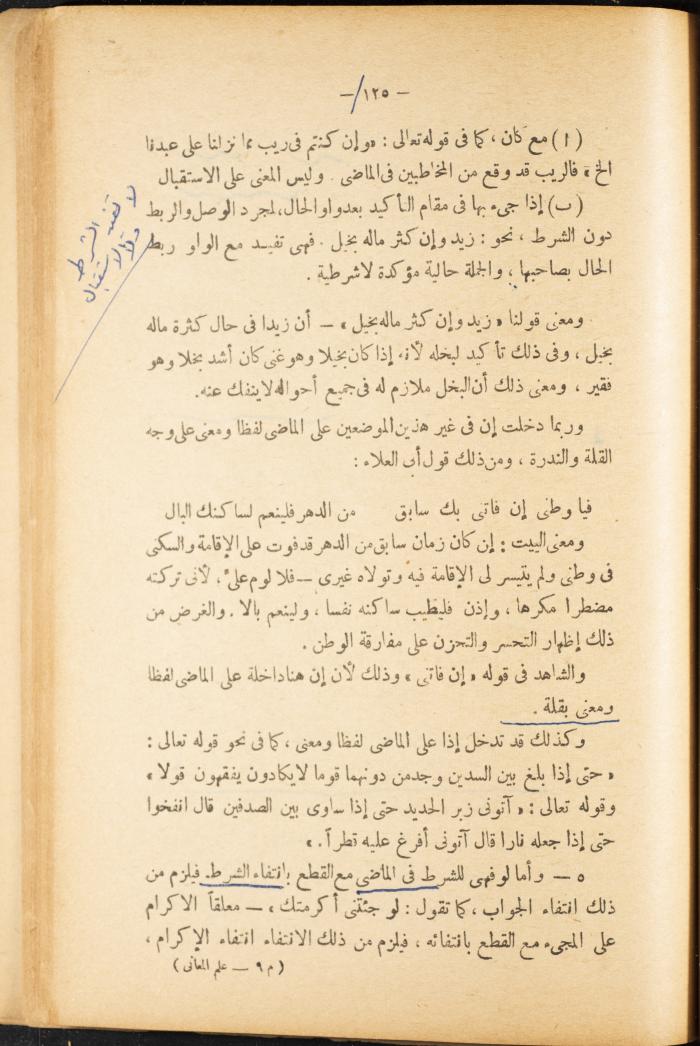 — ١٢٥ —
(ا) مع كان ، كما فى قوله تعالى : «وإن كنتم فى ريب مما نزلنا على عبدنا
الخ » فالريب قد وقع من المخاطبين فى الماضى . وليس المعنى على الاستقبال
(ب) إذا جىء بها فى مقام التأكيد بعد واو الحال، لمجرد الوصل والربط
دون الشرط ، نحو : زيد وإن كثر ماله بخيل . فهى تفيد مع الواو ربط
الحال بصاحبها ، والجملة حالية مؤكدة لا شرطية .
لا تفيد الشرط
ولا الاستقبال
ومعنى قولنا «زيد وإن كثر ماله بخيل» — أن زيدا فى حال كثرة ماله
بخيل ، وفى ذلك تأكيد لبخله لأنه إذا كان بخيلا وهو غنى كان أشد بخلا وهو
فقير ، ومعنى ذلك أن البخل ملازم له فى جميع أحواله لا ينفك عنه.
وربما دخلت إن فى غير هذين الموضعين على الماضى لفظا ومعنى على وجه
القلة والندرة ، ومن ذلك قول أبى العلاء :
فيا وطنى إن فاتنى بك سابق من الدهر فلينعم لساكنك البال
ومعنى البيت : إن كان زمان سابق من الدهر قد فوت على الإقامة والسكنى
فى وطنى ولم يتيسر لى الإقامة فيه وتولاه غيرى — فلا لوم علىّ ، لأنى تركته
مضطرا مكرها ، وإذن فليطيب ساكنه نفسا ، ولينعم بالا . والغرض من
ذلك إظهار التحسر والتحزن على مفارقة الوطن .
والشاهد فى قوله «إن فاتنى» وذلك لأن إن هنا داخلة على الماضى لفظا
ومعنى بقلة .
وكذلك قد تدخل إذا على الماضى لفظا ومعنى ، كما فى نحو قوله تعالى :
« حتى إذا بلغ بين السدين وجد من دونهما قوما لا يكادون يفقهون قولا »
وقوله تعالى : « آتونى زبر الحديد حتى إذا ساوى بين الصدفين قال انفخوا
حتى إذا جعله نارا قال آتونى أفرغ عليه قطراً . »
٥ — وأما لو فهى للشرط فى الماضى مع القطع بانتفاء الشرط. فيلزم من
ذلك انتفاء الجواب ، كما تقول : لو جئتنى أكرمتك ، — معلقاً الاكرام
على المجىء مع القطع بانتفائه ، فيلزم من ذلك الانتفاء انتفاء الإكرام ،
(م ٩ — علم المعانى)